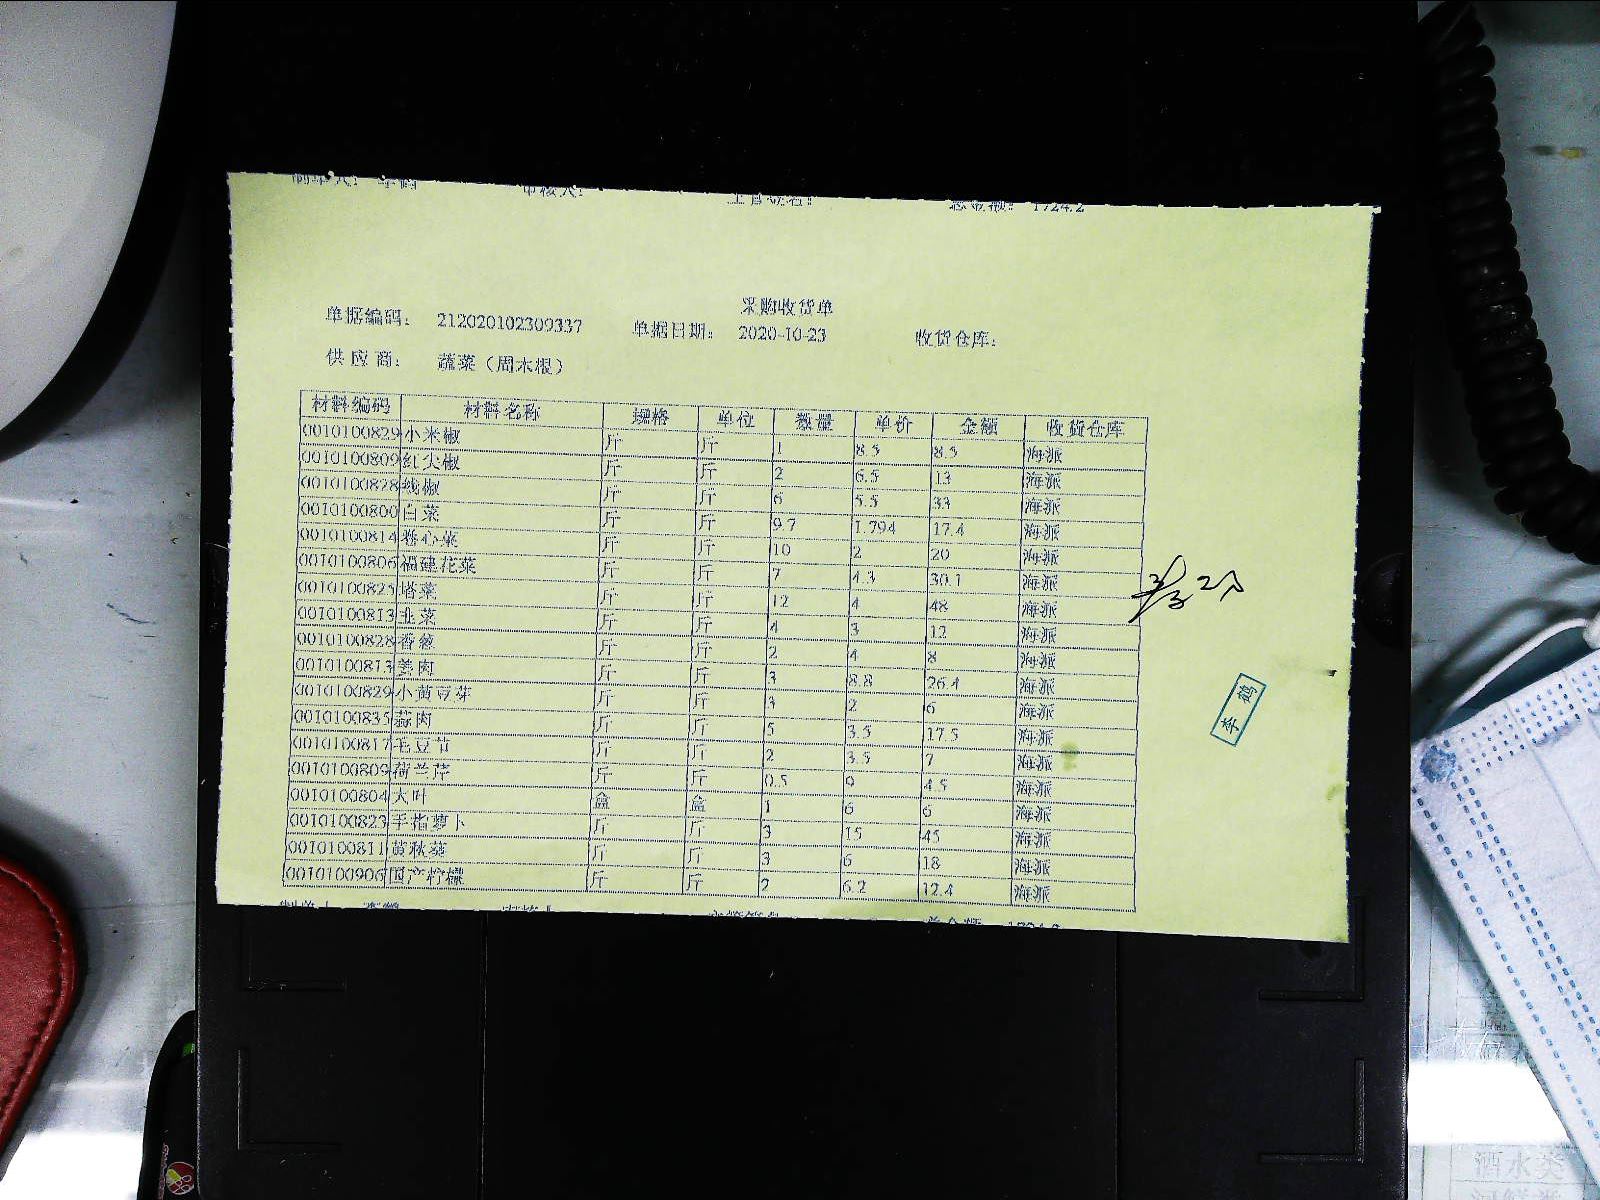 总金额：1724.2
采购收货单
单据编码： 212020102309337 单据日期： 2020-10-23 收货仓库：
供应商： 蔬菜（周木根）
材料编码 材料名称 规格 单位 数量 单价 金额 收货仓库
0010100829 小米椒 斤 斤 1 8.5 8.5 海派
0010100809 红尖椒 斤 斤 2 6.5 13 海派
0010100828 线椒 斤 斤 6 5.5 33 海派
0010100800 白菜 斤 斤 9.7 1.794 17.4 海派
0010100814 卷心菜 斤 斤 10 2 20 海派
0010100806 福建花菜 斤 斤 7 4.3 30.1 海派
0010100825 塔菜 斤 斤 12 4 48 海派
0010100813 韭菜 斤 斤 4 3 12 海派
0010100828 香葱 斤 斤 2 4 8 海派
0010100813 姜肉 斤 斤 3 8.8 26.4 海派
0010100829 小黄豆芽 斤 斤 3 2 6 海派
0010100835 蒜肉 斤 斤 5 3.5 17.5 海派
0010100817 毛豆节 斤 斤 2 3.5 7 海派
0010100809 荷兰芹 斤 斤 0.5 9 4.5 海派
0010100804 大叶 盒 盒 1 6 6 海派
0010100823 手指萝卜 斤 斤 3 15 45 海派
0010100811 黄秋葵 斤 斤 3 6 18 海派
0010100906 国产柠檬 斤 斤 2 6.2 12.4 海派
李鹤
酒水类